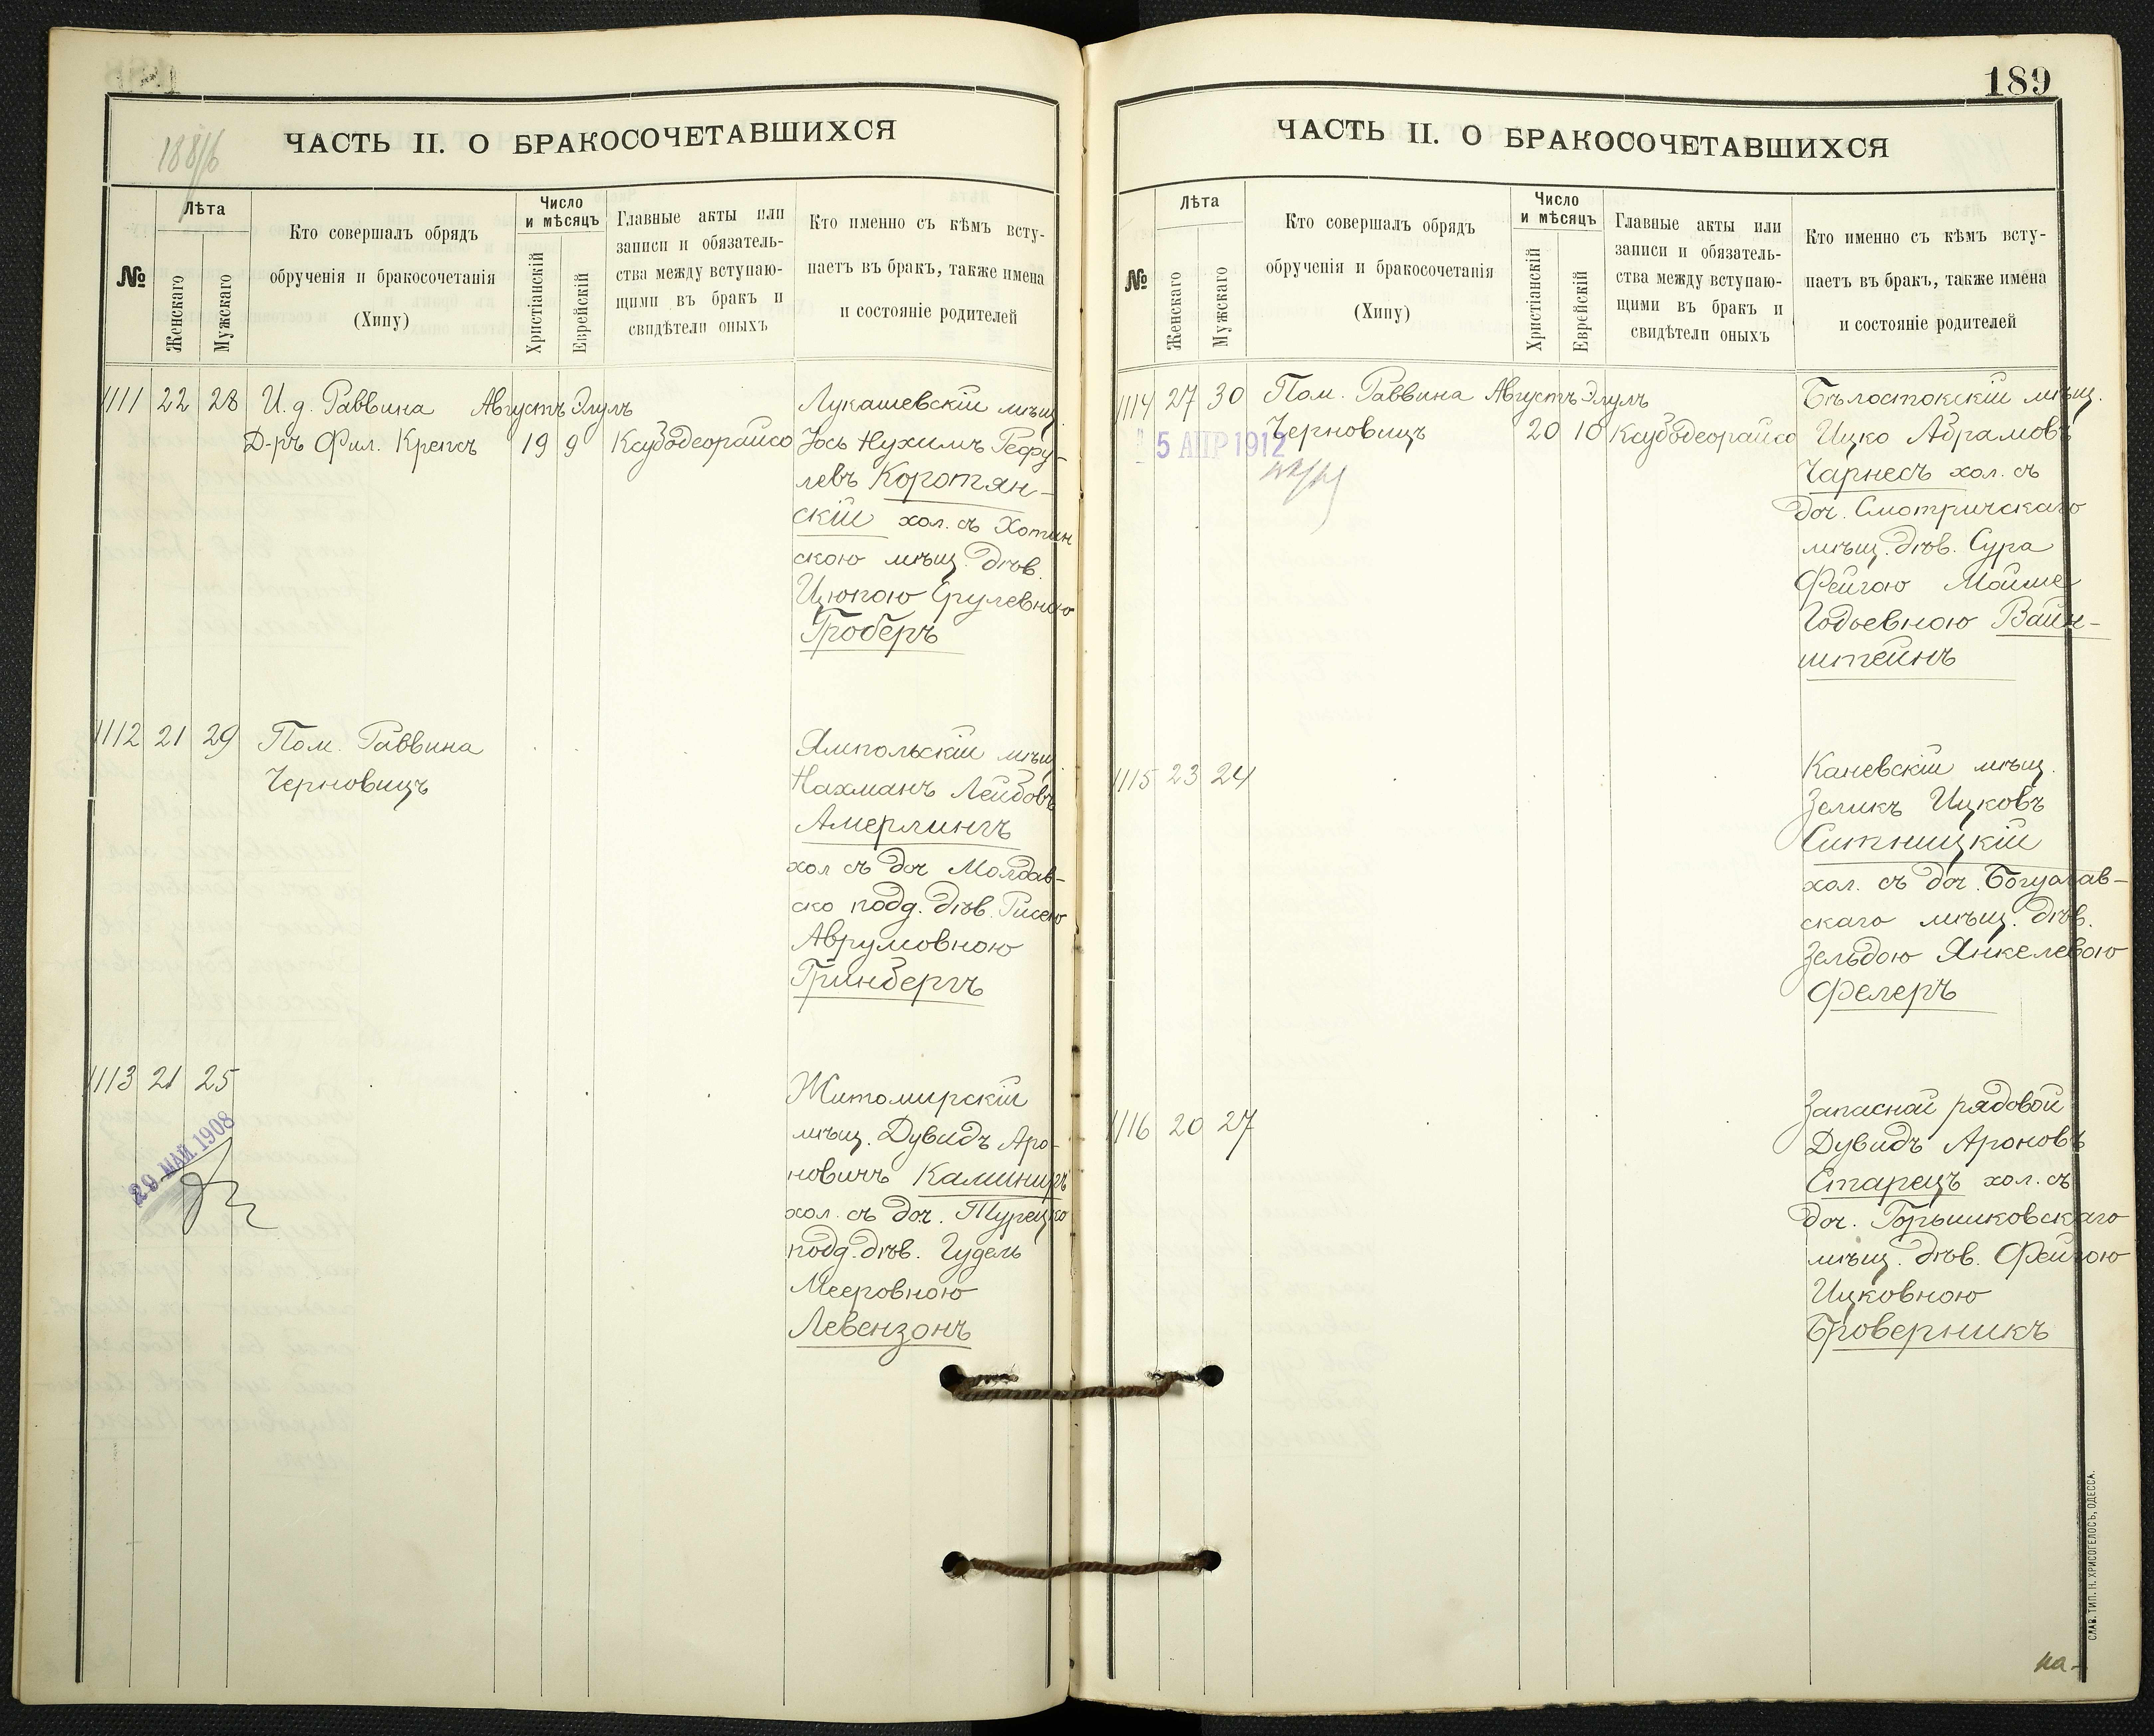 188/б
ЧАСТЬ II. О БРАКОСОЧЕТАВШИХСЯ
№
Лѣта
Женскаго
Мужскаго
Кто совершалъ обрядъ
обрученія и бракосочетанія
(Хипу)
Число
и мѣсяцъ
Христіанскій
Еврейскій
Главные акты или
записи и обязатель-
ства между вступаю-
щими въ бракъ и
свидѣтели оныхъ
Кто именно съ кѣмъ всту-
паетъ въ бракъ, также имена
и состояніе родителей
1111 22 28 И. д. Раввина Августъ Элулъ
Д-ръ Фил. Крепсъ 19 9 Ксубодеорайсо
Лукашевскій мѣщ.
Іось Нухимъ Рефу-
левъ Коротян-
скій хол. съ Хотин
скою мѣщ. дѣв.
Цюпою Срулевною
Гроберъ
1112 21 29 Пом. Раввина
Черновицъ
Ямпольскій мѣщ.
Нахманъ Лейбовъ
Амерлингъ
хол съ доч Молдав-
ско подд. дѣв. Рисею
Аврумовною
Гринбергъ
1113 21 25
29 МАЙ 1908
Житомирскій
мѣщ. Дувидъ Аро-
новичъ Калиниръ
хол. съ доч. Турецко
подд. дѣв. Гудель
Мееровною
Левензонъ
189
ЧАСТЬ II. О БРАКОСОЧЕТАВШИХСЯ
№
Лѣта
Женскаго
Мужскаго
Кто совершалъ обрядъ
обрученія и бракосочетанія
(Хипу)
Число
и мѣсяцъ
Христіанскій
Еврейскій
Главные акты или
записи и обязатель-
ства между вступаю-
щими въ бракъ и
свидѣтели оныхъ
Кто именно съ кѣмъ всту-
паетъ въ бракъ, также имена
и состояніе родителей
1114 27 30 Пом. Раввина Августъ Элулъ
Черновицъ 20 10 Ксубодеорайсо
5 АПР 1912
Бѣлостокскій мѣщ.
Ицко Абрамовъ
Чарнесъ хол. съ
доч. Смотричскаго
мѣщ. дѣв. Сура
Фейгою Мойше
Годьевною Вайн-
штейнъ
1115 23 24
Каневскій мѣщ.
Зеликъ Ицковъ
Ситницкій
хол. съ доч. Богуслав-
скаго мѣщ. дѣв.
Зельдою Янкелевою
Фелеръ
1116 20 27
Запасной рядовой
Дувидъ Ароновъ
Старецъ хол. съ
доч. Горышковскаго
мѣщ. дѣв. Фейгою
Ицковною
Броверникъ
СЛАВ. ТИП. Н. ХРИСОГЕЛОСЪ, ОДЕССА.
на-